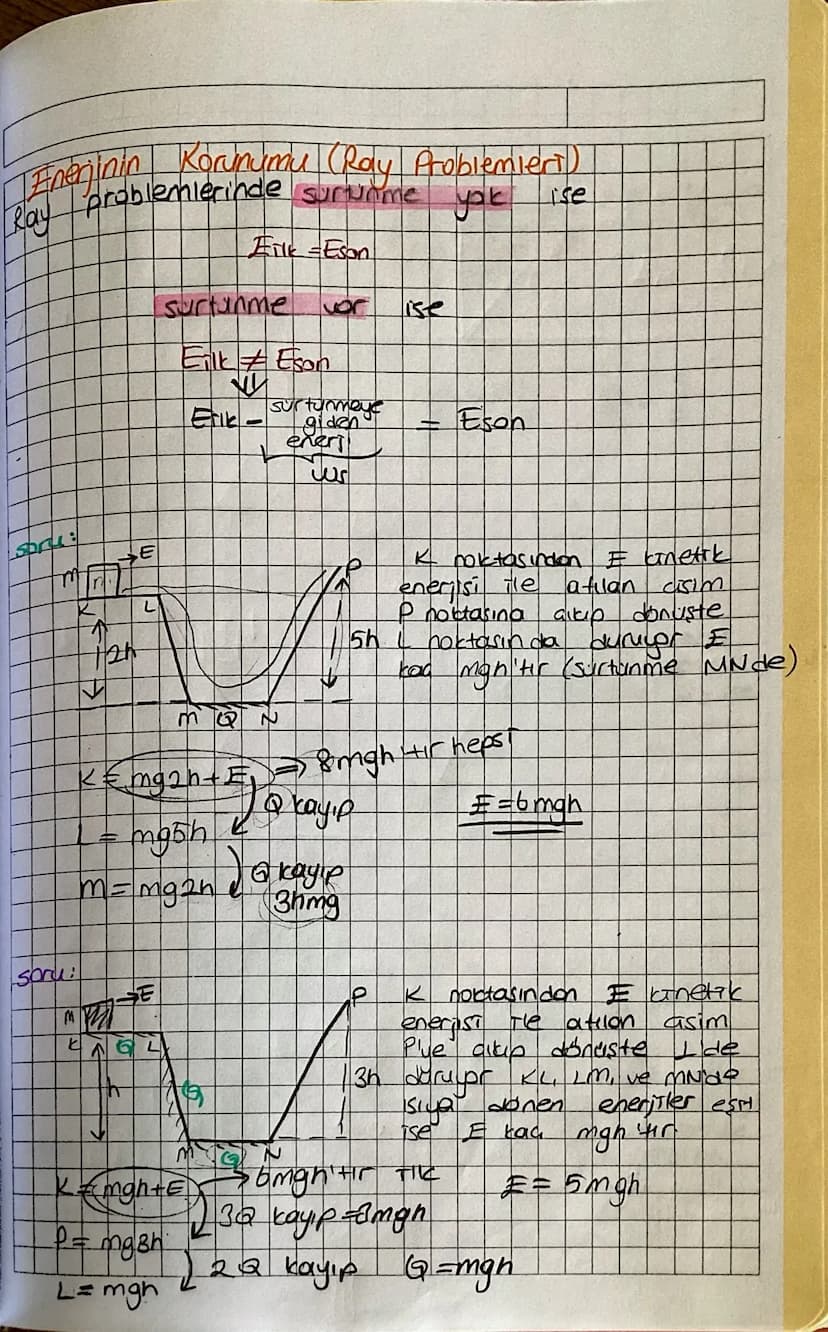 Enerjinin Korunumu (Ray Problemleri)
Ray problemlerinde surtunme yok ise
Eilk = Eson
surtunme var ise
Eilk ≠ Eson
⇓
Eilk - surtunmeye giden enerji = Eson
Ws
soru:
m m → E
K L P
2h 5h
M Q N
K noktasından E kinetik
enerjisi ile atılan cisim
P noktasına çıkıp dönüşte
L noktasında duruyor E
kaç mgh'tır (sürtünme MNde)
K = mg2h + E ⇒ 8mgh'tır hepsi
Q kayıp
E = 6mgh
L = mg5h
Q kayıp
m = mg2h
3hmg
soru:
m → E
K Q L P
h Q 3h
M Q N
K noktasından E kinetik
enerjisi ile atılan cisim
P'ye çıkıp dönüşte L'de
duruyor KL, LM, ve MN'de
ısıya dönen enerjiler eşit
ise E kaç mgh'tır
K = mgh + E → 6mgh'tır ilk
E = 5mgh
3Q kayıp = 3mgh
P = mg3h
2Q kayıp Q = mgh
L = mgh